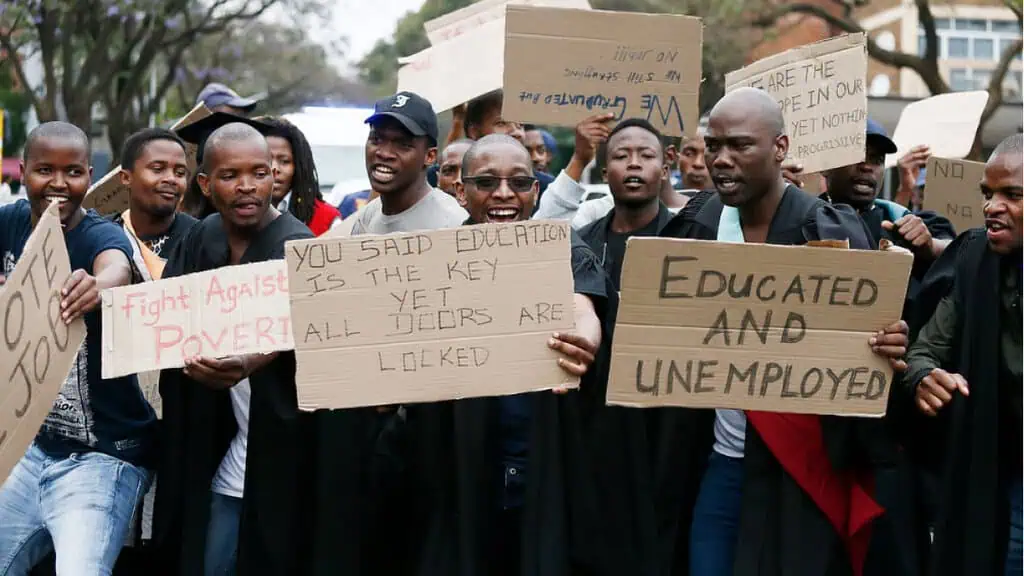 OTE
JOB
Fight Against
POVERT
YOU SAID EDUCATION
IS THE KEY
YET
ALL DOORS ARE
LOCKED
WE GRADUATED BUT
STILL STRUGGLING
NO
ARE THE
OPE IN OUR
YET NOTHIN
PROGRESSIVE
EDUCATED
AND
UNEMPLOYED
NO
NO